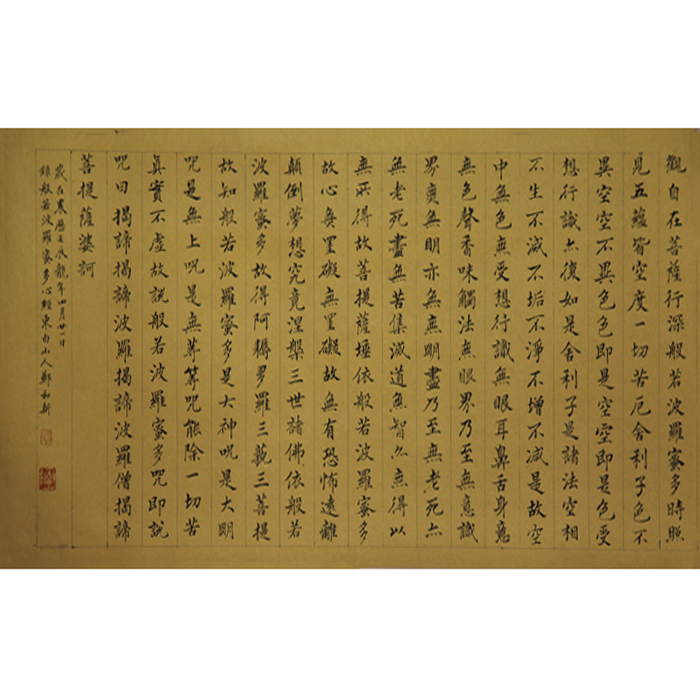 觀自在菩薩行深般若波羅蜜多時照
見五蘊皆空度一切苦厄舍利子色不
異空空不異色色即是空空即是色受
想行識亦復如是舍利子是諸法空相
不生不滅不垢不淨不增不減是故空
中無色無受想行識無眼耳鼻舌身意
無色聲香味觸法無眼界乃至無意識
界亦無明亦無無明盡乃至無老死亦
無老死盡無苦集滅道無智亦無得以
無所得故菩提薩埵依般若波羅蜜多
故心無罣礙無罣礙故無有恐怖遠離
顛倒夢想究竟涅槃三世諸佛依般若
波羅蜜多故得阿耨多羅三藐三菩提
故知般若波羅蜜多是大神咒是大明
咒是無上咒是無等等咒能除一切苦
真實不虛故說般若波羅蜜多咒即說
咒曰揭諦揭諦波羅揭諦波羅僧揭諦
菩提薩婆訶
歲在農曆壬辰龍年四月廿一日
錄般若波羅蜜多心經東白山人鄭和新